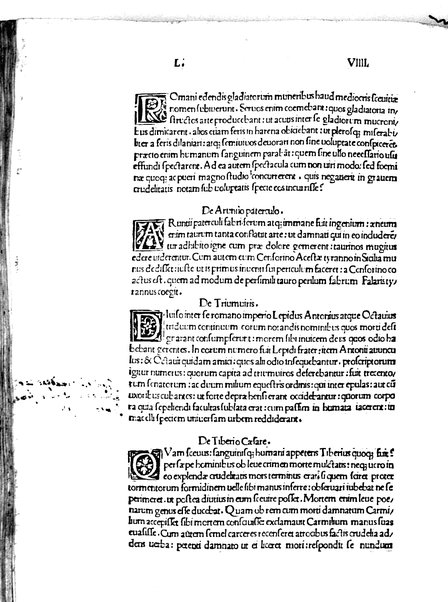 L. VIIII.
ROmani edendis gladiatorum muneribus haud mediocris scæuitiæ
nomen subiuerunt. Seruos enim coemebant: quos gladiatoria in
structos arte producebant: ut acuus inter se gladiorum mucroni
bus dimicarent. alios etiam feris in harena obiciebant: ut plerosq; miserabi
liter a feris dilaniari: atq; semiuiuos deuorari non sine uoluptate conspicerēt.
prætio enim humanum sanguinem parabāt: quem sine ullo necessario usu
effundi spectarent. Ad ea autem spectacula cum non uiri modo: sed foemi
næ quoq: ac pueri magno studio concurrerent. quis negauerit in grauem
crudelitatis notam sub uoluptatis specie eos incurrisse?
De Arrutio paterculo.
ARuntii paterculi fabri ferum atq; immane fuit ingenium: æneum
enim taurum tanta constituit arte: ut damnati qui in eo induderē
tur adhibito igne cum præ dolore gemerent: taurinos mugitus
edere uiderentur. Cum autem eum Censorino Acestæ tyranno in Sicilia mu
nus dedisset: iuste ut is primus inuenti sui periculum faceret: a Censorino co
actus est. quem ad modum de persimili tauro perilum fabrum Falaris ty
rannus coegit.
De Triumuiris.
DIuiso inter se romano imperio Lepidus Antonius atque Octauius
triduum continuum eorum notandis nominibus quos morti desi
gnarant consumpserunt: morem sibi inuicem dens quos odio ha
bebant gerentes. In eorum numero fuit Lepidi frater: item Antonii auuncu
lus: & Octauii quidam amicus: ques alii odio insequebantur. proscriptorum
igitur numerus: quorum capita ad triumuiros deferebantur: fuit trecento
rum senatorum: ac duum milium equestris ordinis: qui inter epulas: aut cū
uxoribus cubantes: ut forte deprahensi erant occidebantur: quorum corpo
ra quia sepeliendi facultas sublata erat: cum passim in humata iacerent: in
macelli speciem uniuersam urbem reddiderant.
De Tiberio Cæsare.
QVam sceuus: sanguinisq; humani appetens Tiberius quoq; fuit?
per sæpe hominibus ob leue crimen morte mulctatis: neq; uero in
eo explendæ crudelitatis mors terminus erat: si quem senserat præter
tormentorum formidinem uelle sibi manus inferre: obseruari iubebat ne se
perimeret. ut postea diutius in eum scæuire posset. Mortem enim leue poe,
narum genus esse ducebat. Quam ob rem cum morti damnatum Carmi,
lium accepisset sibi mortem consciuisse exclamauit Carmilium manus suas
euasisse. Cum autem semel carceres recenseret atrociius factis crudelia ad,
dens uerba: petenti damnato ut ei liceret mori: respondit se nundum